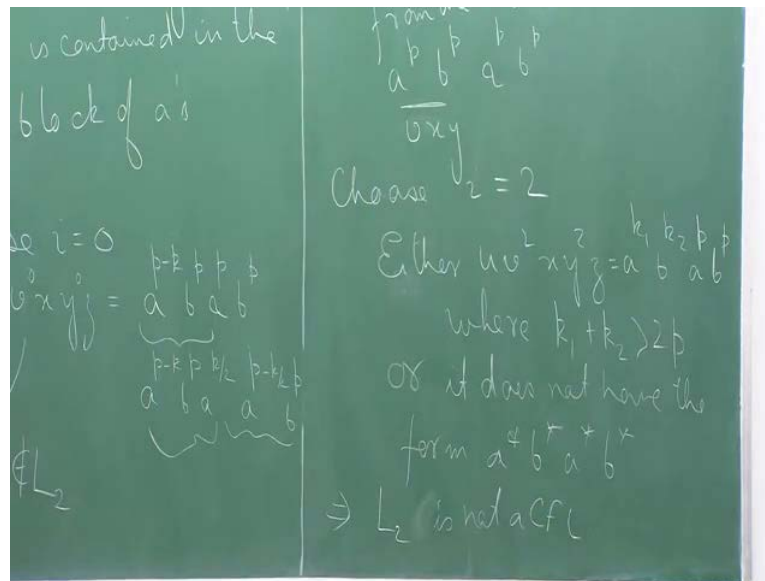 is contained in the
block of a's
se i=0
v⁰xy⁰z = a^{p-k} b^p a^p b^p
a^{p-k} b^p a^{k/2} a^{p-k/2} b^p
∉L₂
from
a^p b^p a^p b^p
vxy
Choose i = 2
Either uv²xy²z = a^{k₁} b^{k₂} a^p b^p
where k₁+k₂>2p
or it does not have the
form a*b*a*b*
⇒ L₂ is not a CFL